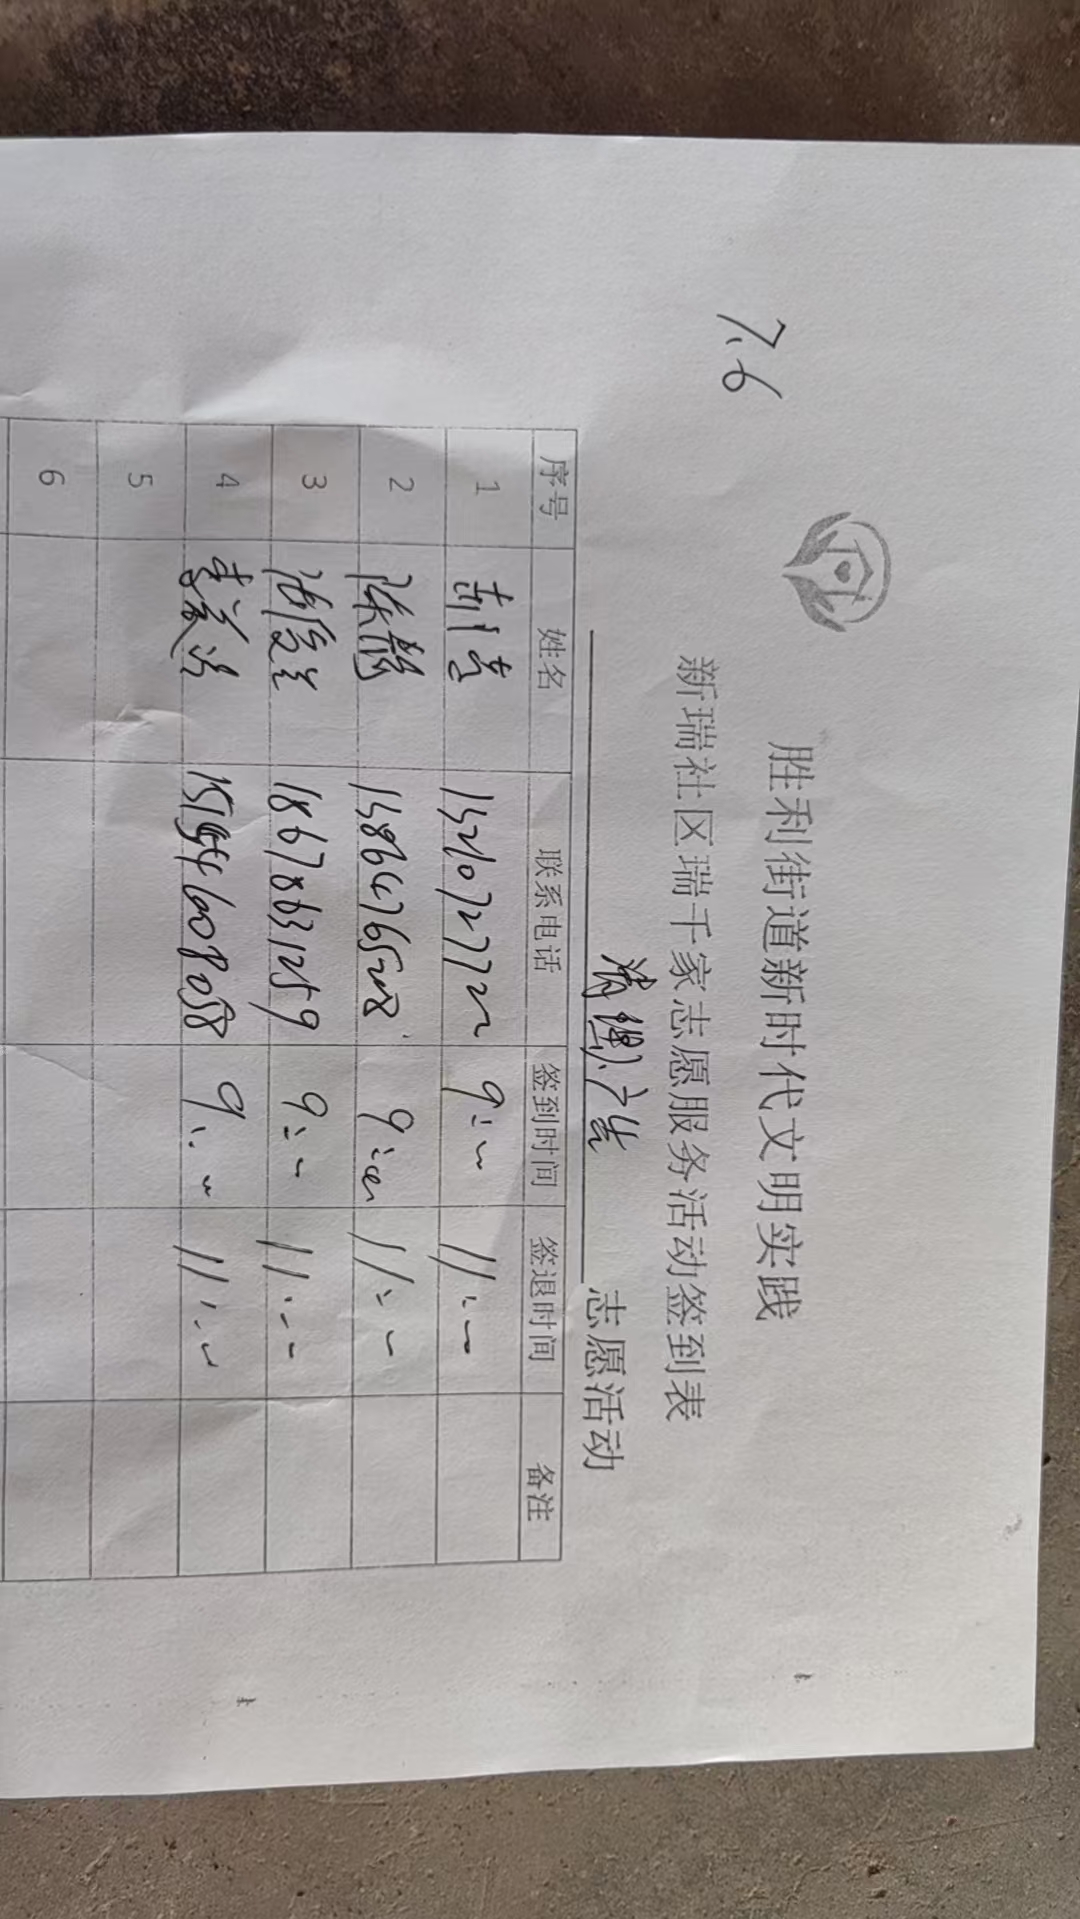 7.6
胜利街道新时代文明实践
新瑞社区瑞千家志愿服务活动签到表
清理广告 志愿活动
序号 姓名 联系电话 签到时间 签退时间 备注
1 胡吉 9:00 11:00
2 陈静 9:00 11:00
3 18678631259 9:00 11:00
4 9:00 11:00
5
6